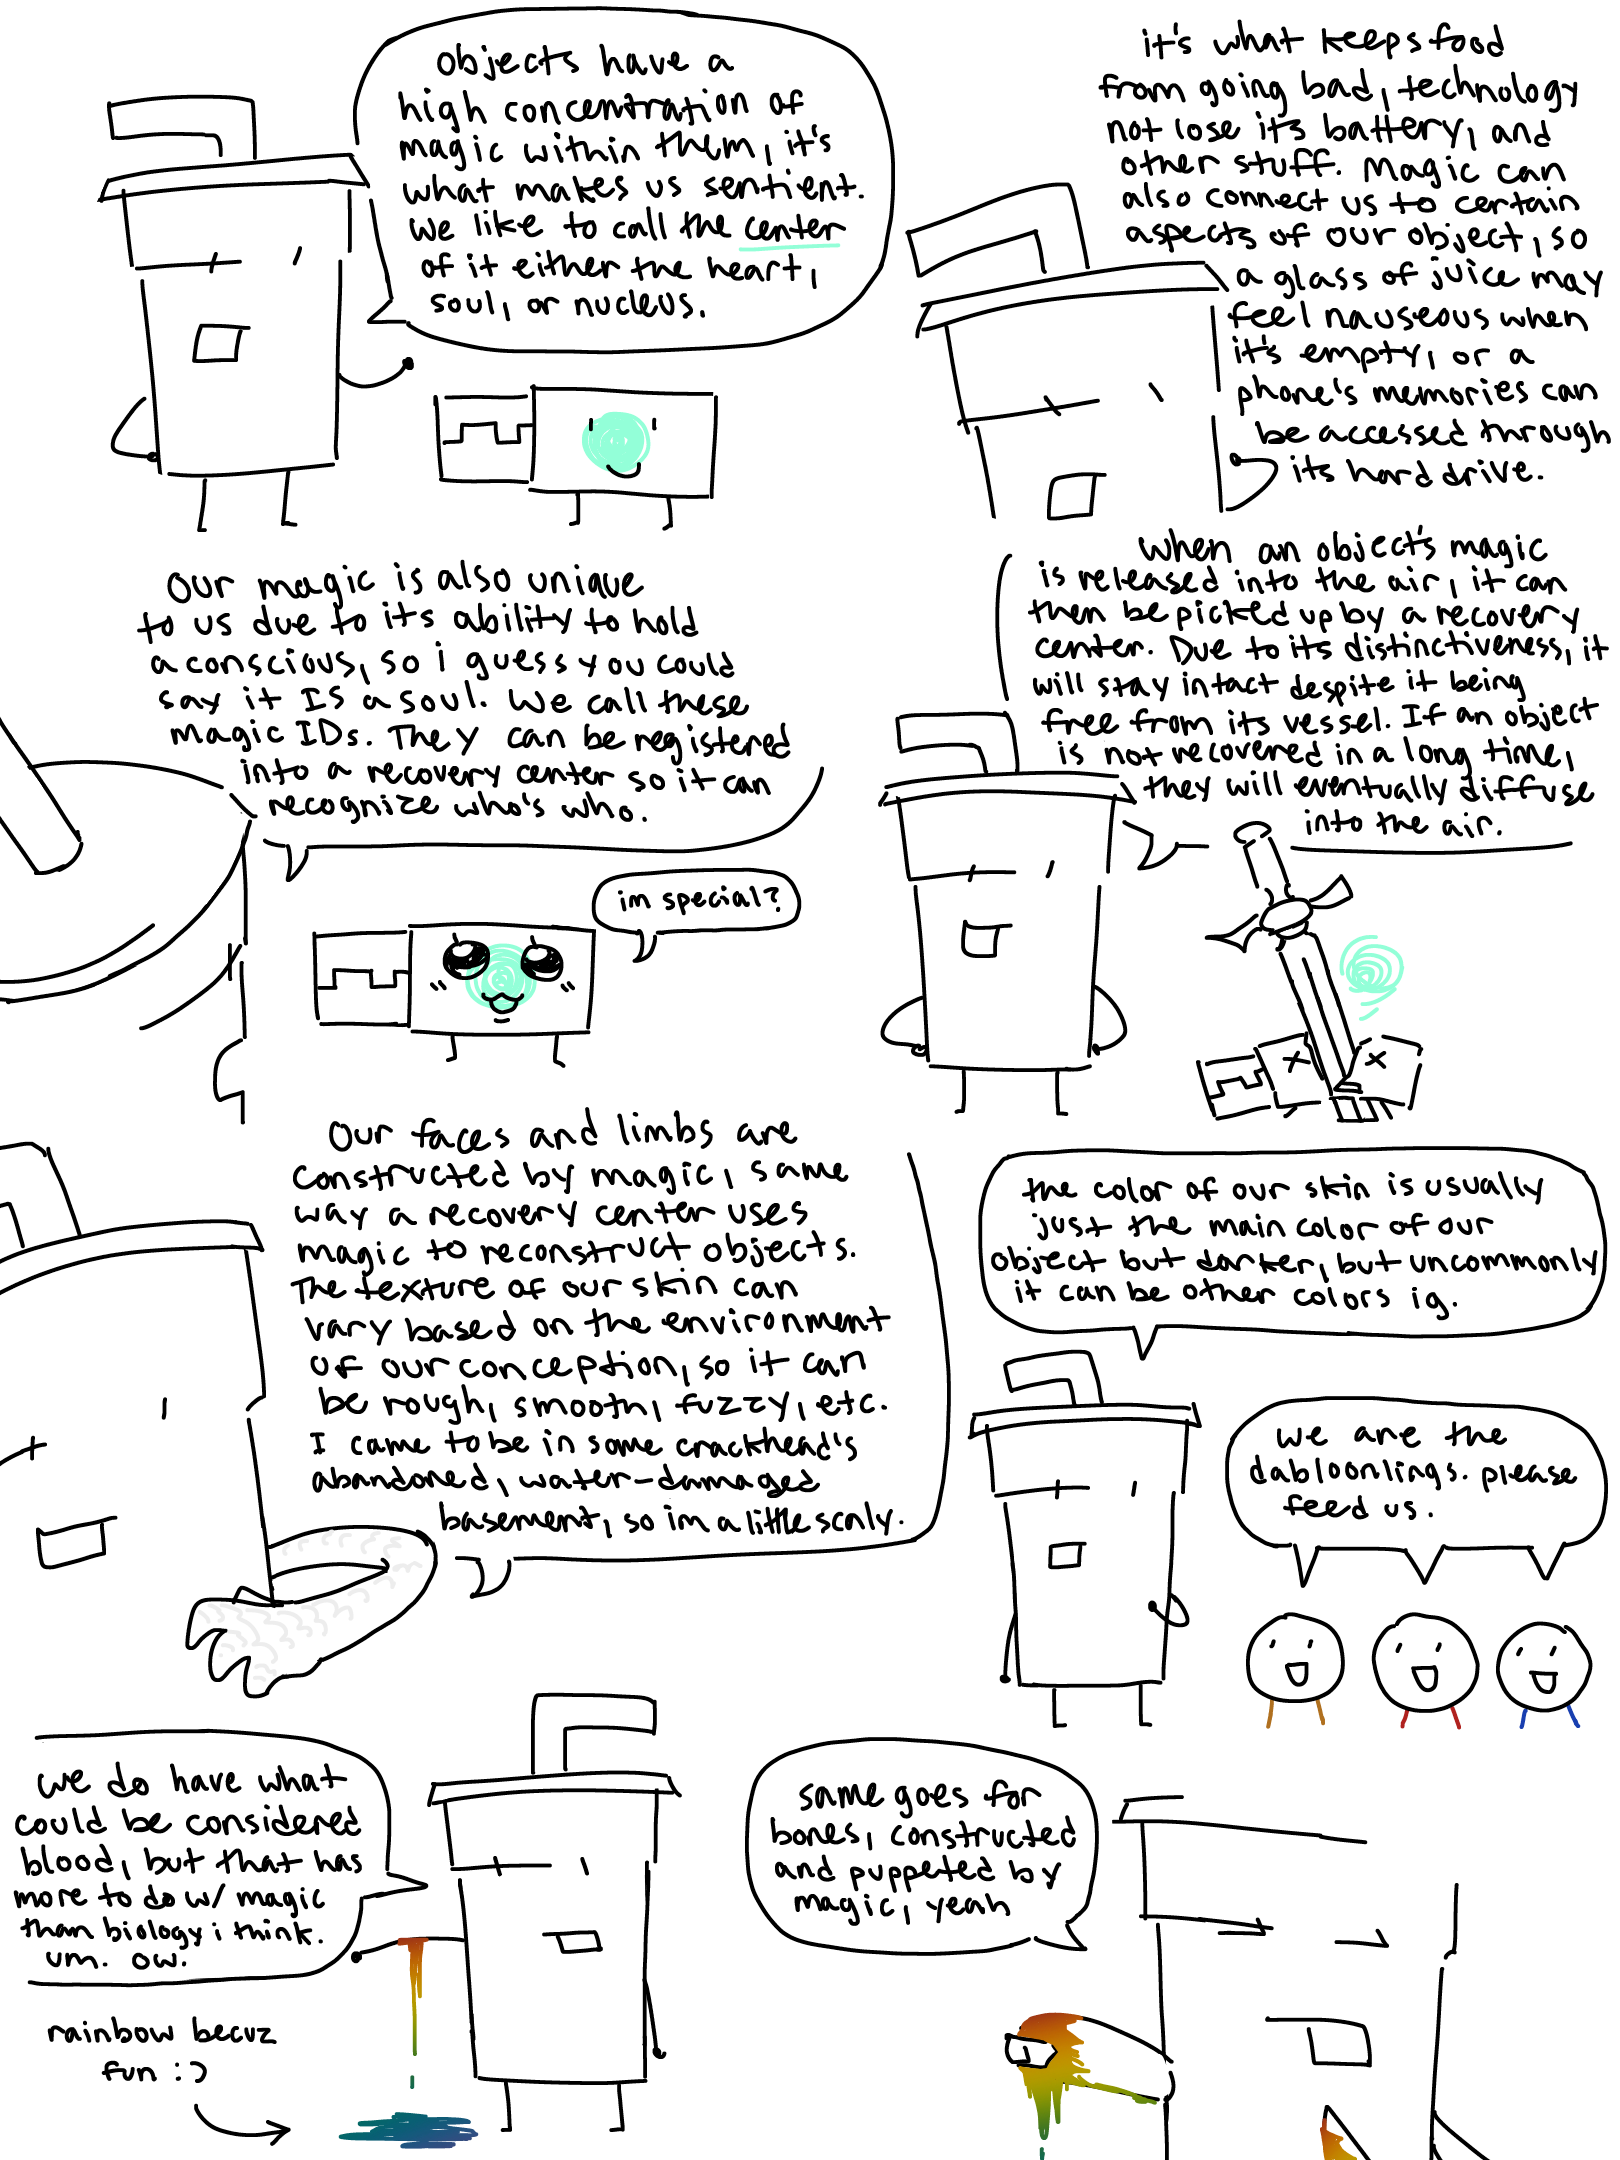 objects have a
high concentration of
magic within them, it's
what makes us sentient.
We like to call the center
of it either the heart,
soul, or nucleus.
it's what keeps food
from going bad, technology
not lose its battery, and
other stuff. Magic can
also connect us to certain
aspects of our object, so
a glass of juice may
feel nauseous when
it's empty, or a
phone's memories can
be accessed through
its hard drive.
Our magic is also unique
to us due to its ability to hold
a conscious, so i guess you could
say it IS a soul. We call these
magic IDs. They can be registered
into a recovery center so it can
recognize who's who.
im special?
When an object's magic
is released into the air, it can
then be picked up by a recovery
center. Due to its distinctiveness, it
will stay intact despite it being
free from its vessel. If an object
is not recovered in a long time,
they will eventually diffuse
into the air.
Our faces and limbs are
constructed by magic, same
way a recovery center uses
magic to reconstruct objects.
The texture of our skin can
vary based on the environment
of our conception, so it can
be rough, smooth, fuzzy, etc.
I came to be in some crackhead's
abandoned, water-damaged
basement, so im a little scaly.
the color of our skin is usually
just the main color of our
object but darker, but uncommonly
it can be other colors ig.
we are the
dabloonlings. please
feed us.
we do have what
could be considered
blood, but that has
more to do w/ magic
than biology i think.
um. ow.
rainbow becuz
fun :)
same goes for
bones, constructed
and puppeted by
magic, yeah